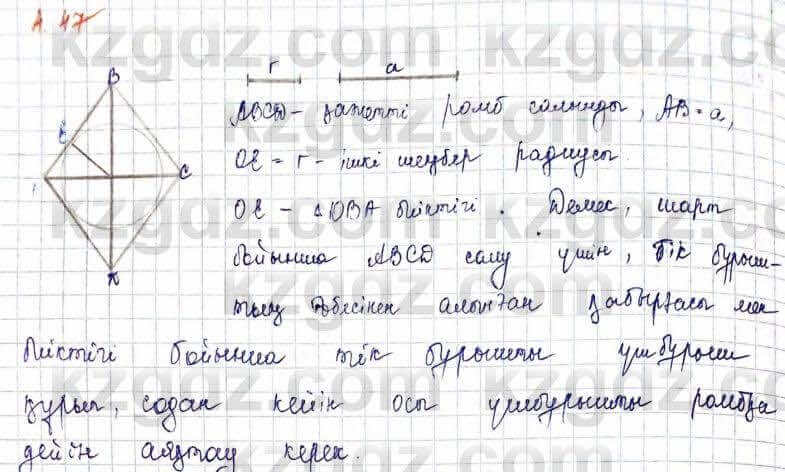 А. 47
r a
B
E
C
ABCD - қажетті ромб салынды, AB = a,
OE = r - ішкі шеңбер радиусы.
OE - ΔOBA биіктігі. Демек, шарт
бойынша ABCD салу үшін, тік бұрыш-
тың төбесінен алынған қабырғасы мен
биіктігі бойынша тік бұрышты үшбұрыш
құрып, содан кейін осы үшбұрышты ромбқа
дейін аяқтау керек.
kzgdz.com kzgdz.com